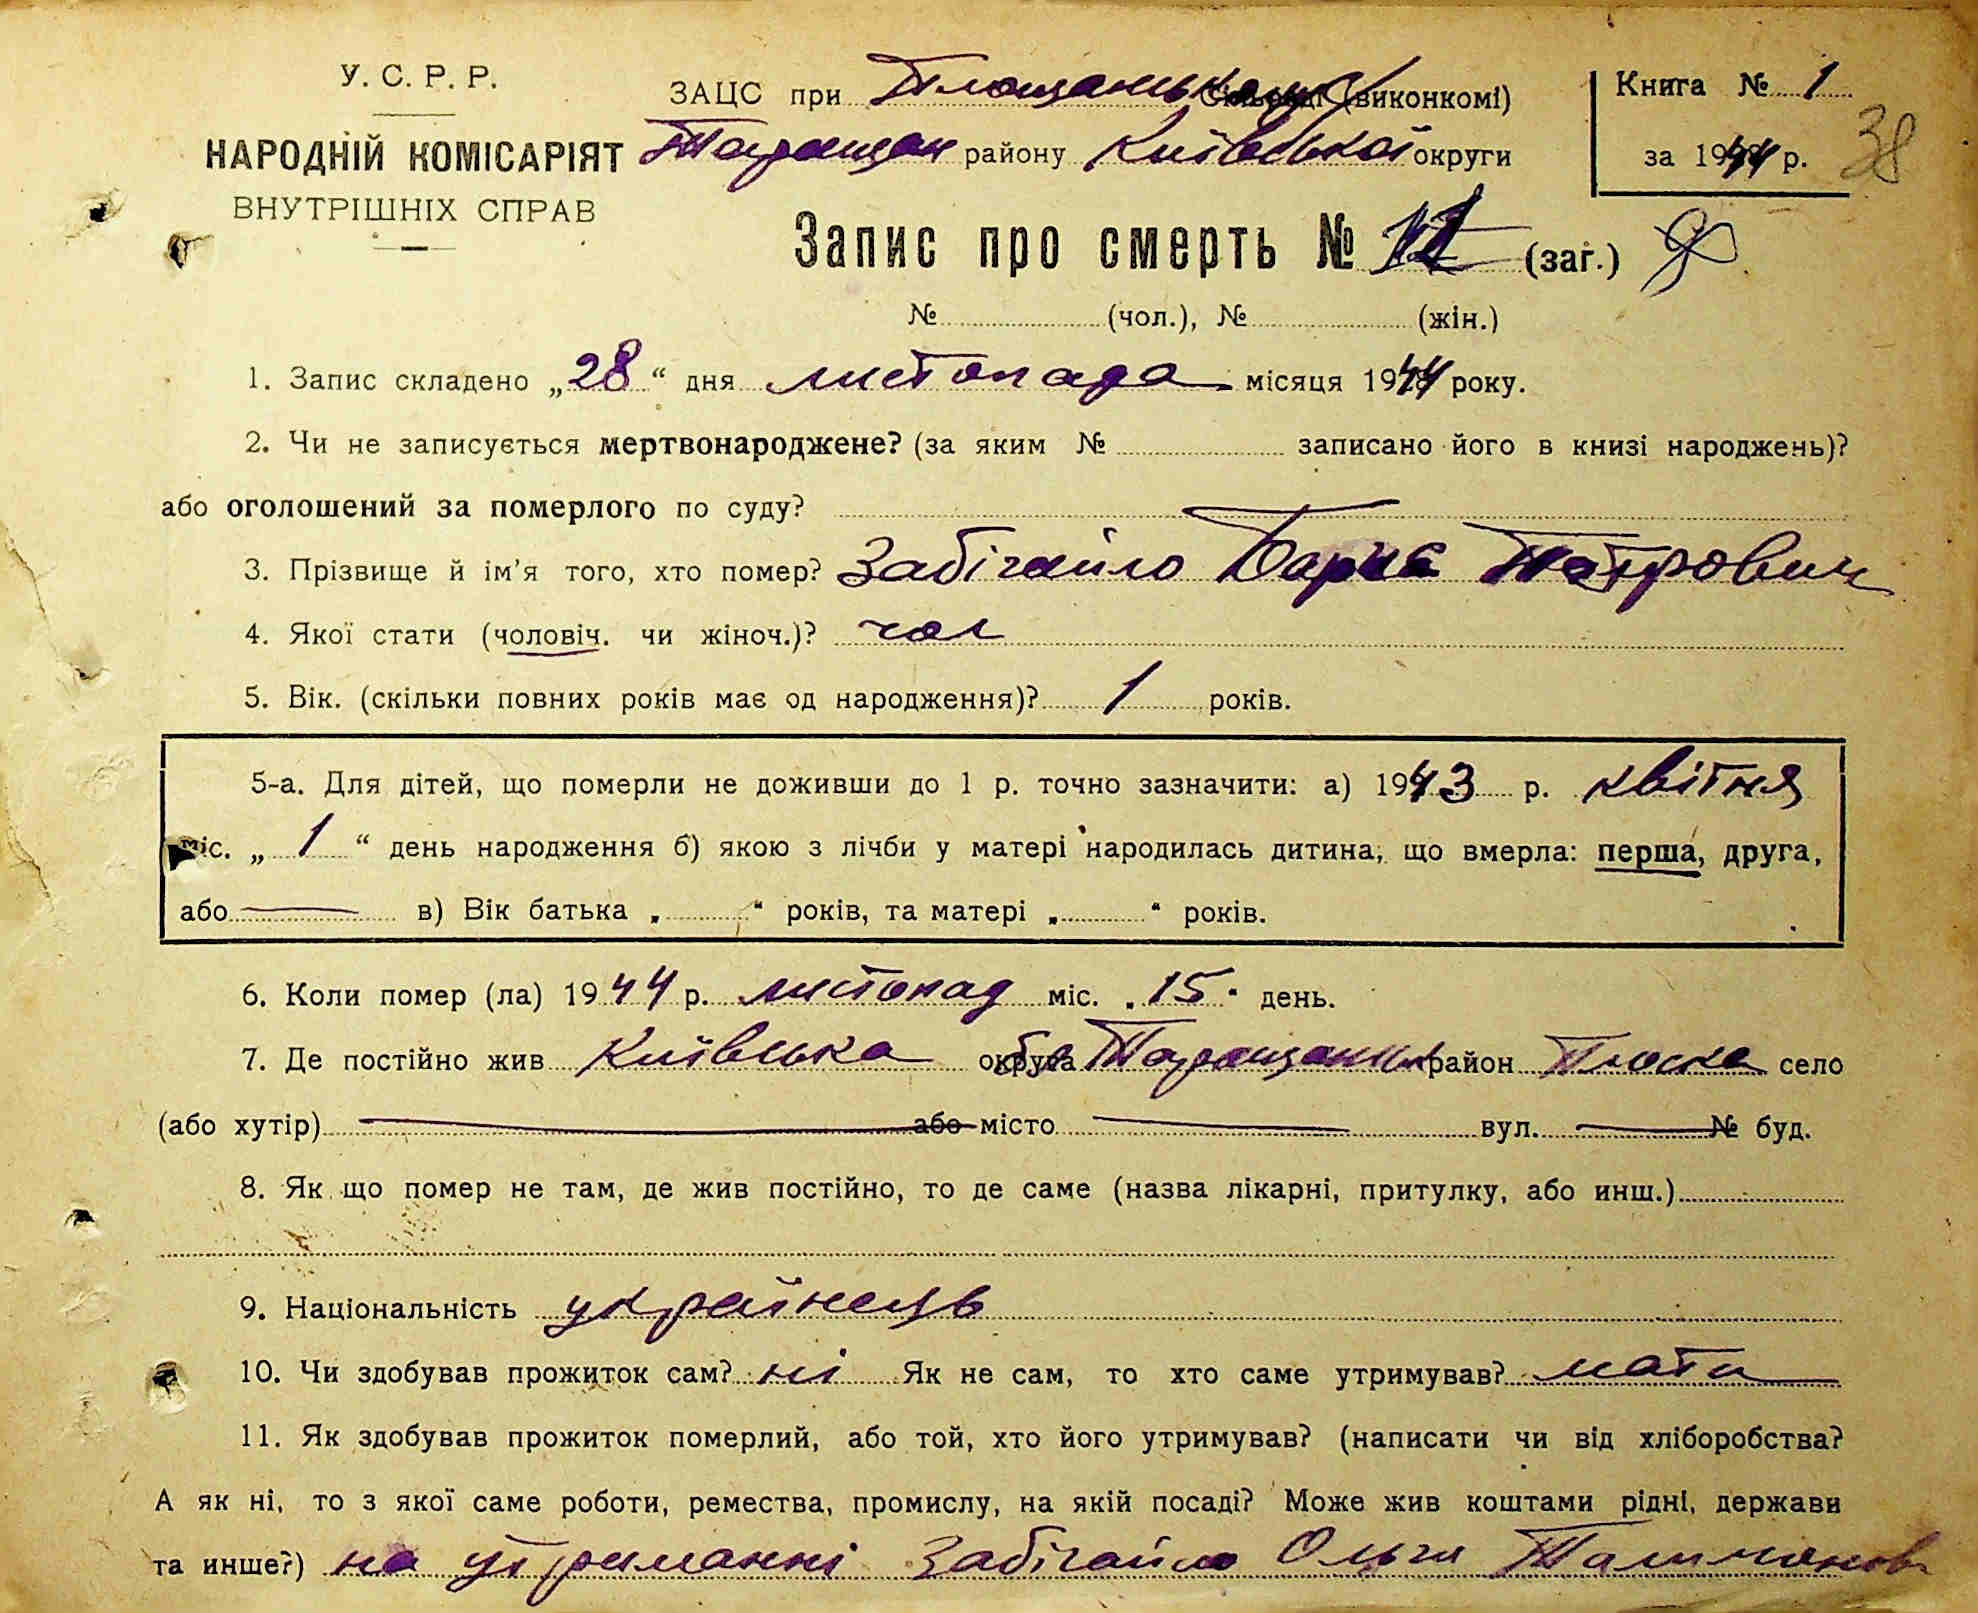 У. С. Р. Р.
НАРОДНІЙ КОМІСАРІЯТ
ВНУТРІШНІХ СПРАВ
ЗАЦС при Площанській (виконкомі)
Таращан району Київської округи
Книга № 1
за 1944 р. 38
Запис про смерть № (заг.)
№ (чол.), № (жін.)
1. Запис складено „28“ дня листопада місяця 1944 року.
2. Чи не записується мертвонароджене? (за яким № записано його в книзі народжень)?
або оголошений за померлого по суду?
3. Прізвище й ім’я того, хто помер? Забігайло Петрович
4. Якої стати (чоловіч. чи жіноч.)? чол
5. Вік. (скільки повних років має од народження)? 1 років.
5-а. Для дітей, що померли не доживши до 1 р. точно зазначити: а) 1943 р. квітня
міс. „ 1 “ день народження б) якою з лічби у матері народилась дитина, що вмерла: перша, друга,
або в) Вік батька „ “ років, та матері „ “ років.
6. Коли помер (ла) 1944 р. листопад міс. „15“ день.
7. Де постійно жив Київська округа Таращанськ район село
(або хутір) або місто вул. № буд.
8. Як що помер не там, де жив постійно, то де саме (назва лікарні, притулку, або инш.)
9. Національність українець
10. Чи здобував прожиток сам? ні Як не сам, то хто саме утримував? мати
11. Як здобував прожиток померлий, або той, хто його утримував? (написати чи від хліборобства?
А як ні, то з якої саме роботи, ремества, промислу, на якій посаді? Може жив коштами рідні, держави
та инше?) на утриманні Забігайло Ольги